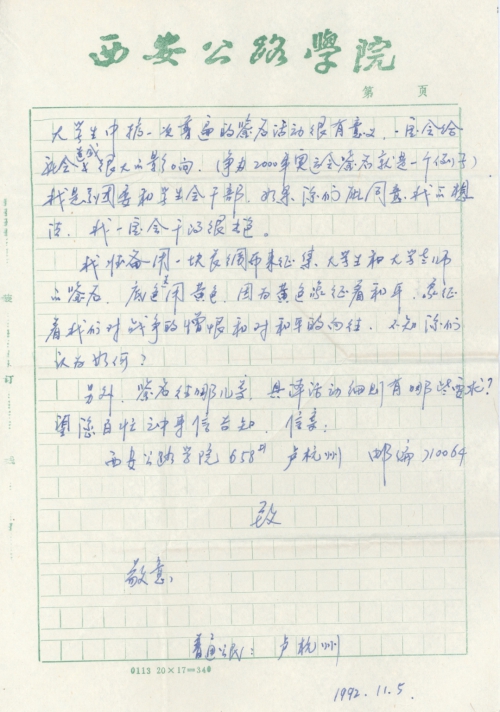 西安公路學院
第 页
大学生中搞一次普遍的签名活动很有意义，一定会给
社会造成很大的影响，（争办2000年奥运会签名就是一个例子）
我是系团委和学生会干部，如果你们能同意我的想
法，我一定会干的很出色。
我准备用一块长绸布来征集大学生和大学老师
的签名，底色用黄色，因为黄色象征着和平，象征
着我们对战争的憎恨和对和平的向往，不知你们
认为如何？
另外，签名往哪儿寄，具体活动细则有哪些要求？
望您百忙之中来信告知，信寄：
西安公路学院658# 卢杭州 邮编710064
致
敬意
普通公民：卢杭州
1992.11.5.
装
订
0113 20×17=340